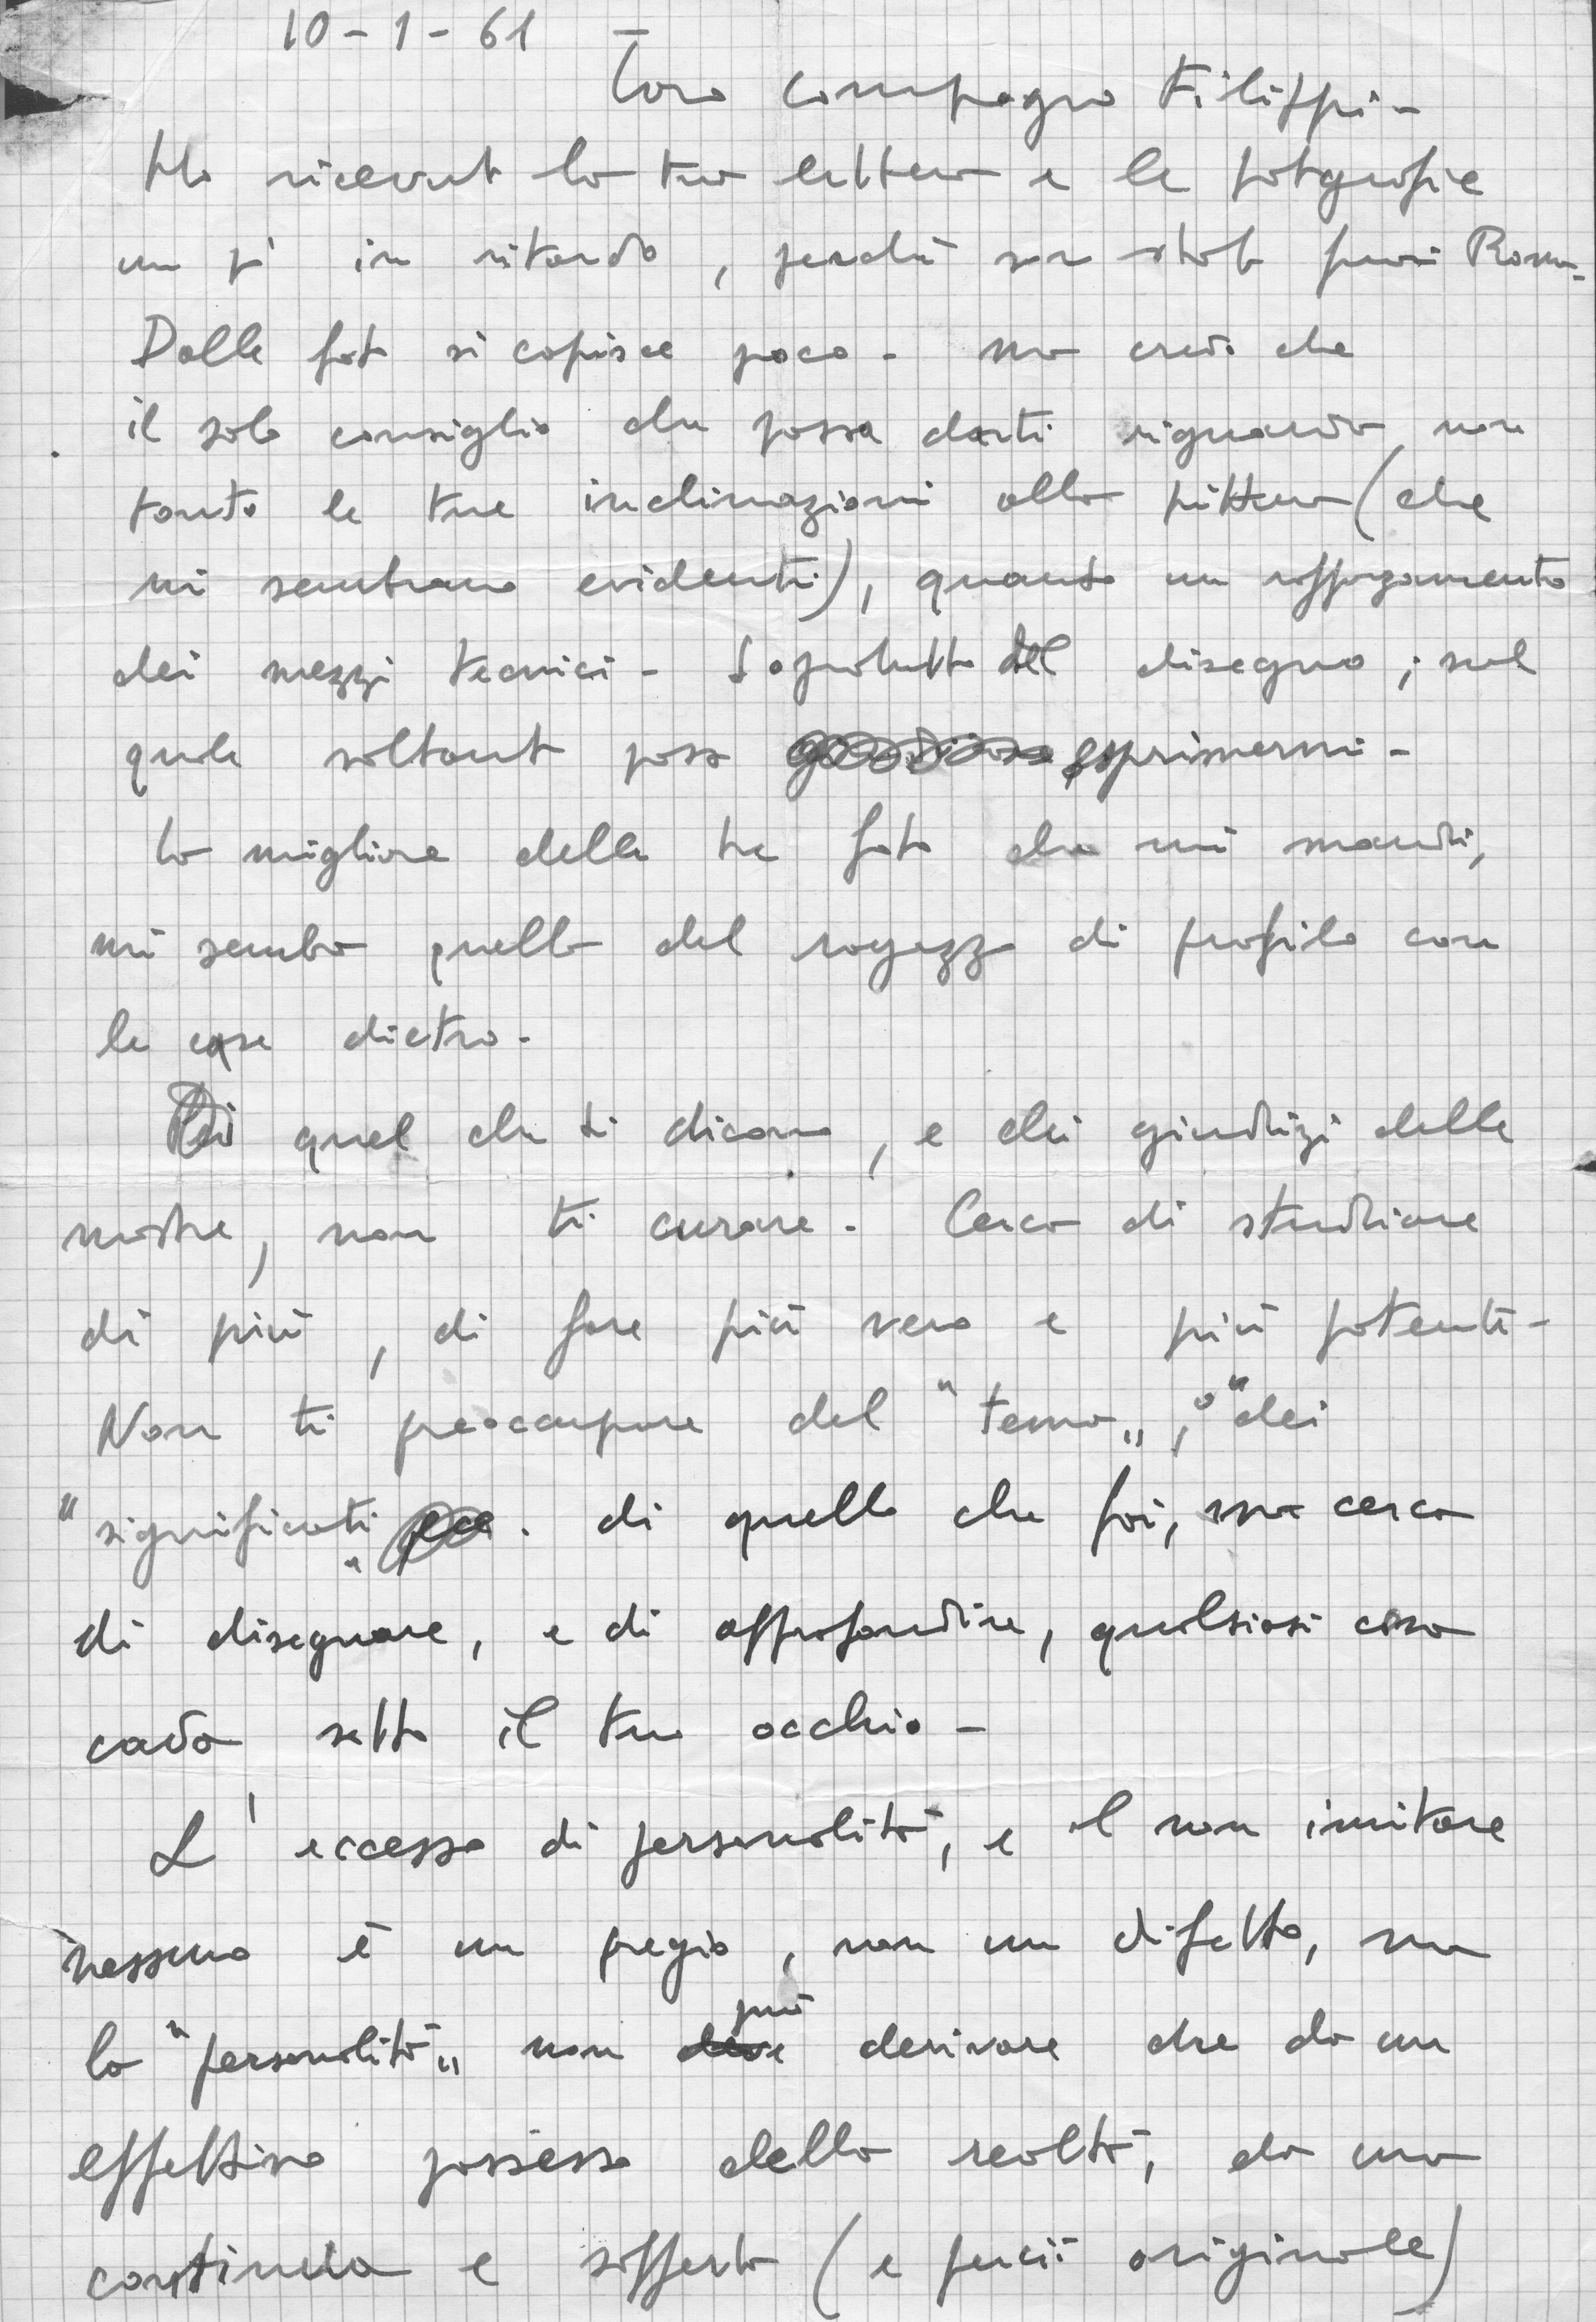 10-1-61
Caro compagno Filippi-
Ho ricevuto la tua lettera e le fotografie
un po' in ritardo, perché son stato fuori Roma-
Dalle foto si capisce poco- ma credo che
il solo consiglio che possa darti riguarda non
tanto le tue inclinazioni alla pittura (che
mi sembrano evidenti), quanto un rafforzamento
dei mezzi tecnici- Soprattutto del disegno; sul
quale soltanto posso esprimermi-
La migliore delle tre foto che mi mandi,
mi sembra quella del ragazzo di profilo con
le case dietro-
Di quel che ti dicono, e dei giudizi delle
mostre, non ti curare- Cerca di studiare
di più, di fare più vero e più potente-
Non ti preoccupare del "tema", o dei
"significati" di quello che fai, ma cerca
di disegnare, e di approfondire, qualsiasi cosa
cada sotto il tuo occhio-
L'eccesso di personalità, e il non imitare
nessuno è un pregio, non un difetto, ma
la "personalità" non può derivare che da un
effettivo possesso della realtà, da una
continua e sofferta (e perciò originale)